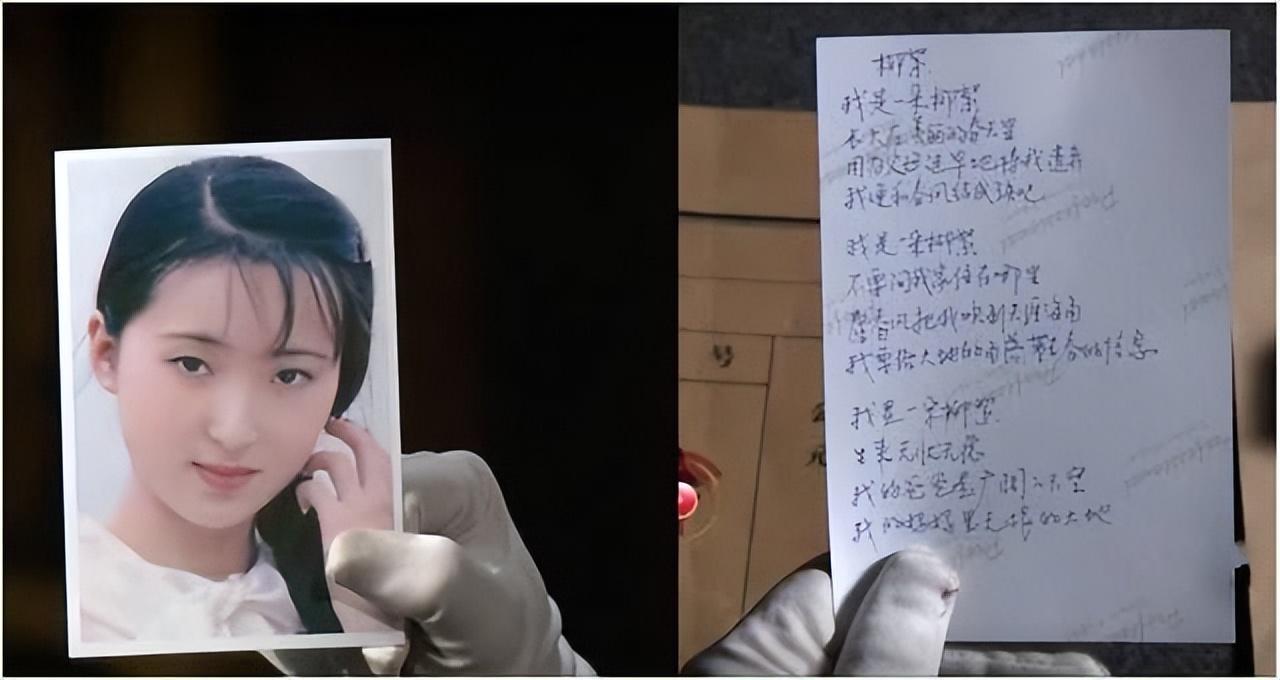 柳絮
我是一朵柳絮
长大在美丽的春天里
因为父母过早地将我遗弃
我便和春风结成知己
我是一朵柳絮
不要问我家住在哪里
愿春风把我吹到天涯海角
我要给大地的角落带去春的信息
我是一朵柳絮
生来无忧无虑
我的爸爸是广阔的天空
我的妈妈是无垠的大地
号